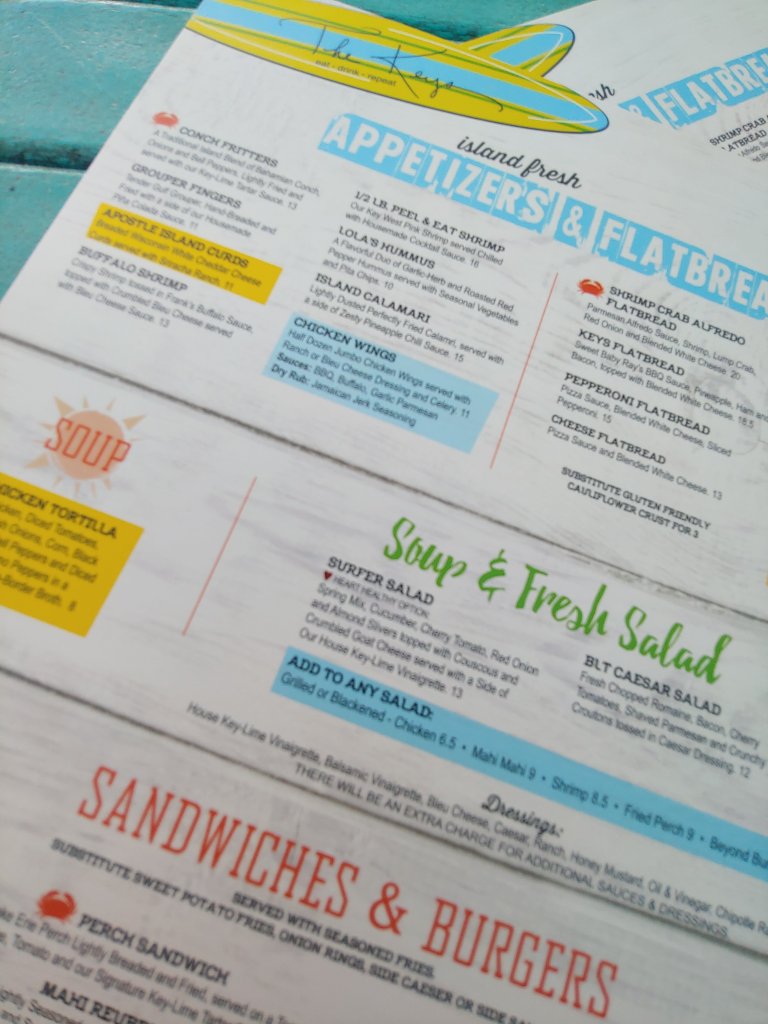 The Keys
eat - drink - repeat
island fresh
APPETIZERS & FLATBREA
CONCH FRITTERS
A Traditional Island Blend of Bahamian Conch,
Onions and Bell Peppers, Lightly Fried and
served with our Key-Lime Tartar Sauce. 13
GROUPER FINGERS
Tender Gulf Grouper, Hand-Breaded and
Fried with a side of our Housemade
Piña Colada Sauce. 11
APOSTLE ISLAND CURDS
Breaded Wisconsin White Cheddar Cheese
Curds served with Sriracha Ranch. 11
BUFFALO SHRIMP
Crispy Shrimp tossed in Frank's Buffalo Sauce,
topped with Crumbled Bleu Cheese served
with Bleu Cheese Sauce. 13
1/2 LB. PEEL & EAT SHRIMP
Our Key West Pink Shrimp served Chilled
with Housemade Cocktail Sauce. 16
LOLA'S HUMMUS
A Flavorful Duo of Garlic-Herb and Roasted Red
Pepper Hummus served with Seasonal Vegetables
and Pita Chips. 10
ISLAND CALAMARI
Lightly Dusted Perfectly Fried Calamri, served with
a side of Zesty Pineapple Chili Sauce. 15
CHICKEN WINGS
Half Dozen Jumbo Chicken Wings served with
Ranch or Bleu Cheese Dressing and Celery. 11
Sauces: BBQ, Buffalo, Garlic Parmesan
Dry Rub: Jamaican Jerk Seasoning
SHRIMP CRAB ALFREDO
FLATBREAD
Parmesan Alfredo Sauce, Shrimp, Lump Crab,
Red Onion and Blended White Cheese. 20
KEYS FLATBREAD
Sweet Baby Ray's BBQ Sauce, Pineapple, Ham and
Bacon, topped with Blended White Cheese. 18.5
PEPPERONI FLATBREAD
Pizza Sauce, Blended White Cheese, Sliced
Pepperoni. 15
CHEESE FLATBREAD
Pizza Sauce and Blended White Cheese. 13
SUBSTITUTE GLUTEN FRIENDLY
CAULIFLOWER CRUST FOR 3
& FLATBREA
SHRIMP CRAB
SOUP
CHICKEN TORTILLA
Diced Tomatoes,
Onions, Corn, Black
Peppers and Diced
Peppers in a
-Border Broth. 8
Soup & Fresh Salad
SURFER SALAD
HEART HEALTHY OPTION
Spring Mix, Cucumber, Cherry Tomato, Red Onion
and Almond Slivers topped with Couscous and
Crumbled Goat Cheese served with a Side of
Our House Key-Lime Vinaigrette. 13
BLT CAESAR SALAD
Fresh Chopped Romaine, Bacon, Cherry
Tomatoes, Shaved Parmesan and Crunchy
Croutons tossed in Caesar Dressing. 12
ADD TO ANY SALAD:
Grilled or Blackened - Chicken 6.5 • Mahi Mahi 9 • Shrimp 8.5 • Fried Perch 9 • Beyond Bu
Dressings:
House Key-Lime Vinaigrette, Balsamic Vinaigrette, Bleu Cheese, Caesar, Ranch, Honey Mustard, Oil & Vinegar, Chipotle Ra
THERE WILL BE AN EXTRA CHARGE FOR ADDITIONAL SAUCES & DRESSINGS.
SANDWICHES & BURGERS
SERVED WITH SEASONED FRIES.
SUBSTITUTE SWEET POTATO FRIES, ONION RINGS, SIDE CAESER OR SIDE SA
PERCH SANDWICH
Erie Perch Lightly Breaded and Fried, served on a T
Tomato and our Signature Key-Lime Tart
MAHI REUBE
Lightly Seasoned